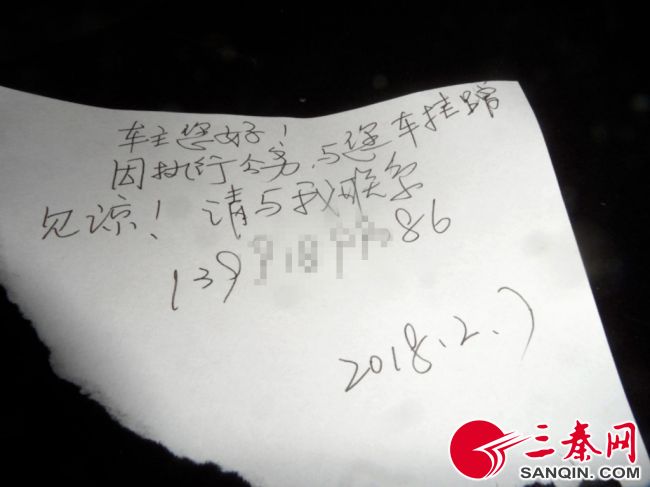 车主您好！
因执行公务，与您车挂蹭
见谅！请与我联系
139 86
2018.2.7
三秦网
SANQIN.COM